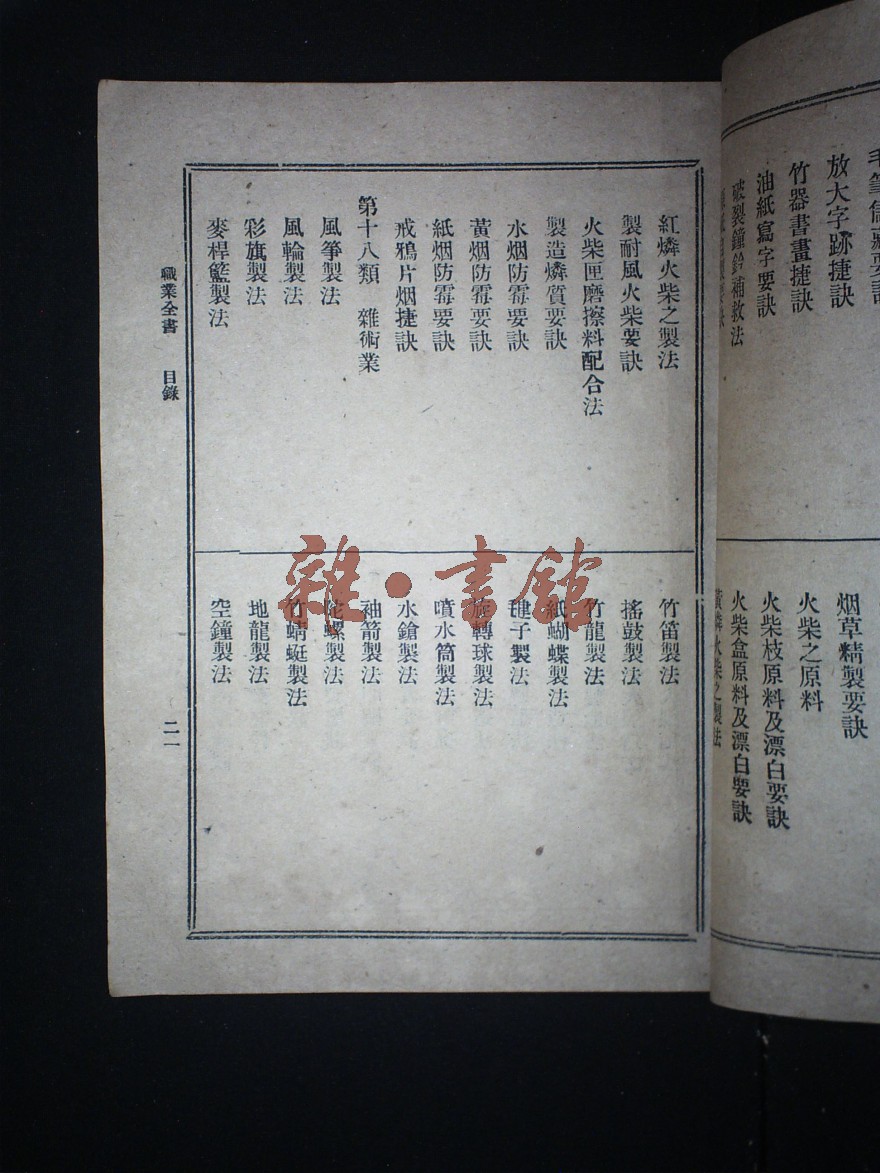 放大字跡捷訣
竹器書畫捷訣
油紙寫字要訣
破裂鐘鈴補救法
烟草精製要訣
火柴之原料
火柴枝原料及漂白要訣
火柴盒原料及漂白要訣
黃燐火柴之製法
紅燐火柴之製法
製耐風火柴要訣
火柴匣磨擦料配合法
製造燐質要訣
水烟防霉要訣
黃烟防霉要訣
紙烟防霉要訣
戒鴉片烟捷訣
第十八類 雜術業
風箏製法
風輪製法
彩旗製法
麥桿籃製法
竹笛製法
搖鼓製法
竹龍製法
紙蝴蝶製法
毽子製法
旋轉球製法
噴水筒製法
水鎗製法
袖箭製法
陀螺製法
竹蜻蜓製法
地龍製法
空鐘製法
職業全書 目錄
二一
雜·書館